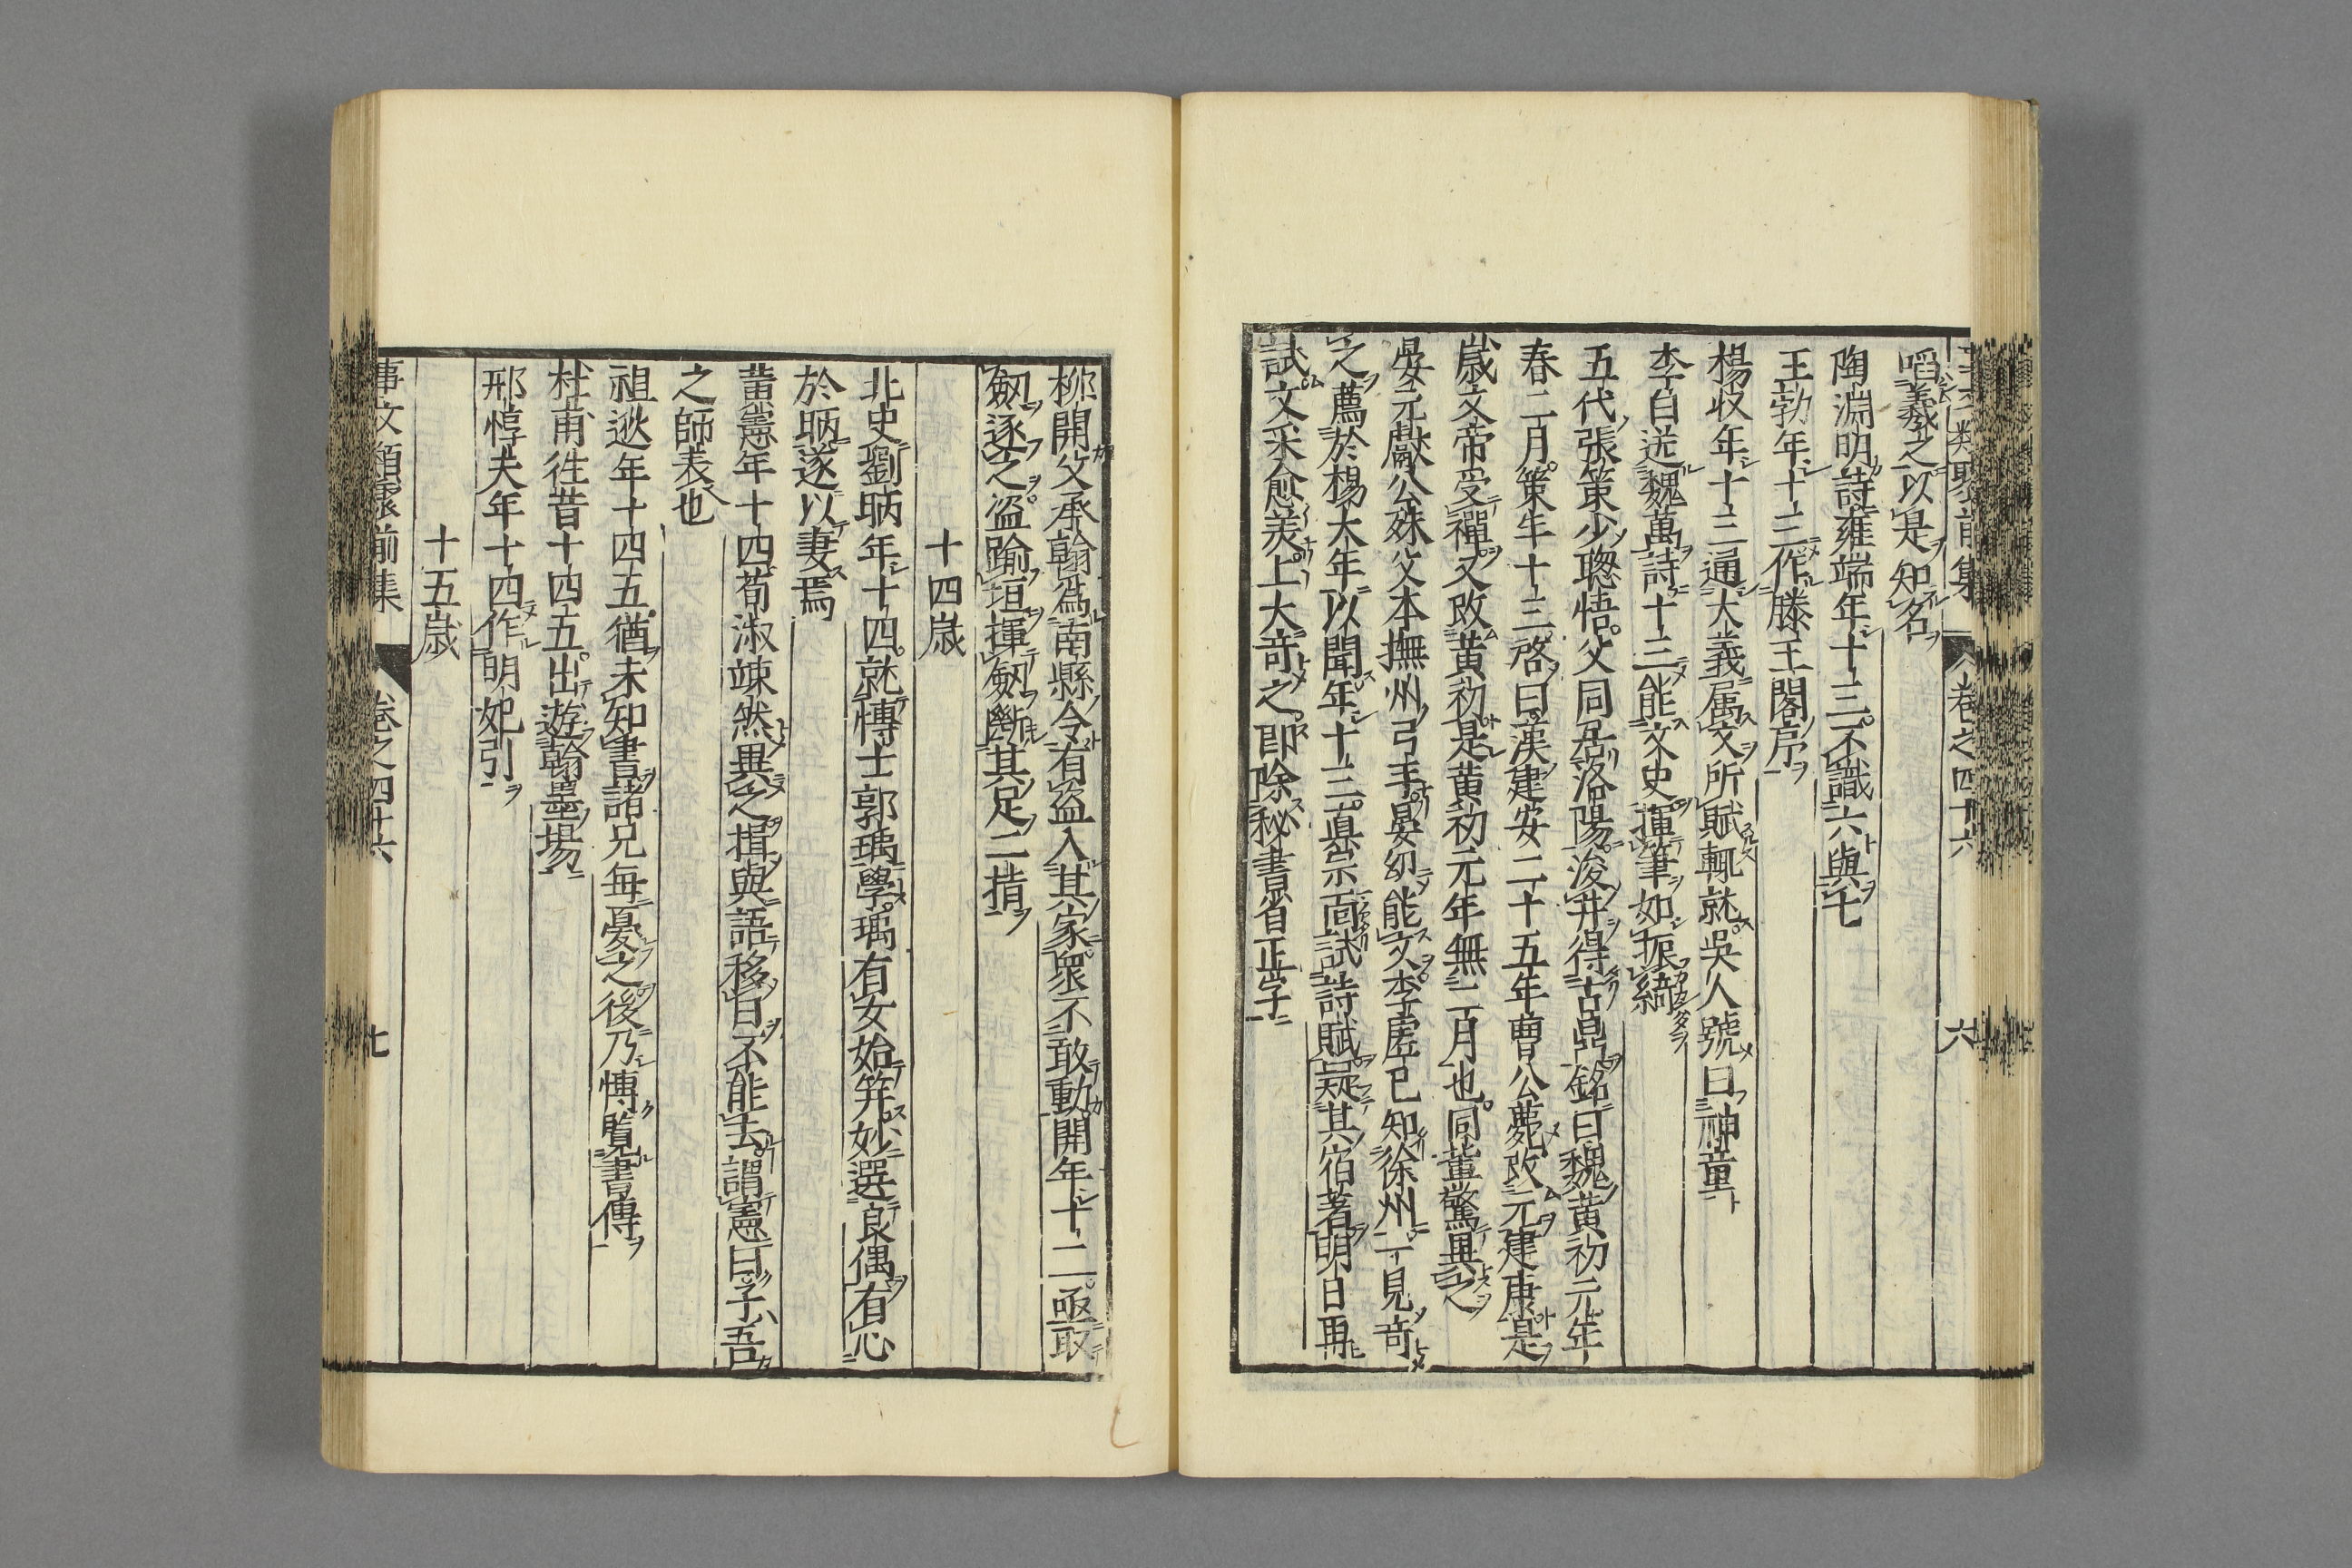 啗羲之以是知名
陶淵明詩雍端年十三不識六與七
王勃年十三作滕王閣序
楊收年十三通大義属文所賦輒就吳人號曰神童
李白送魏萬詩十三能文史揮筆如振綺
五代張策少聰悟父同居洛陽浚井得古鼎銘曰魏黃初元年
春二月策年十三啓曰漢建安二十五年曹公薨改元建康是
歳文帝受禪又改黃初是黃初元年無二月也同董驚異之
晏元獻公殊父本撫州弓手晏幼能文李虛已知徐州一見竒
之薦於楊大年以聞年十三真宗面試詩賦疑其宿著明日再
試文采愈羙上大竒之即除秘書省正字
卷之四十六
六
柳開父承翰爲南縣令有盜入其家衆不敢動開年十二亟取
劔逐之盜踰垣揮劔斷其足二指
十四歳
北史劉昞年十四就博士郭瑀學瑀有女始笄妙選良偶有心
於昞遂以妻焉
黃憲年十四荀淑竦然異之揖與語移日不能去謂憲曰子吾
之師表也
祖逖年十四五猶未知書諸兄每憂之後乃博覧書傳
杜甫徃昔十四五出遊翰墨場
邢惇夫年十四作明妃引
十五歳
事文類聚前集
卷之四十六
七